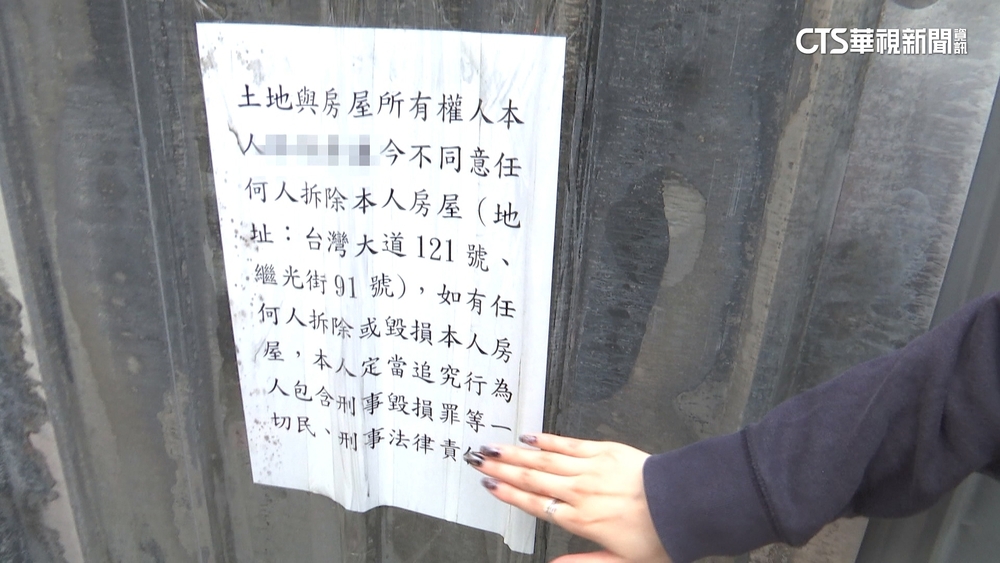 CTS華視新聞資訊
土地與房屋所有權人本
人 今不同意任
何人拆除本人房屋(地
址:台灣大道121號、
繼光街91號),如有任
何人拆除或毀損本人房
屋,本人定當追究行為
人包含刑事毀損罪等一
切民、刑事法律責